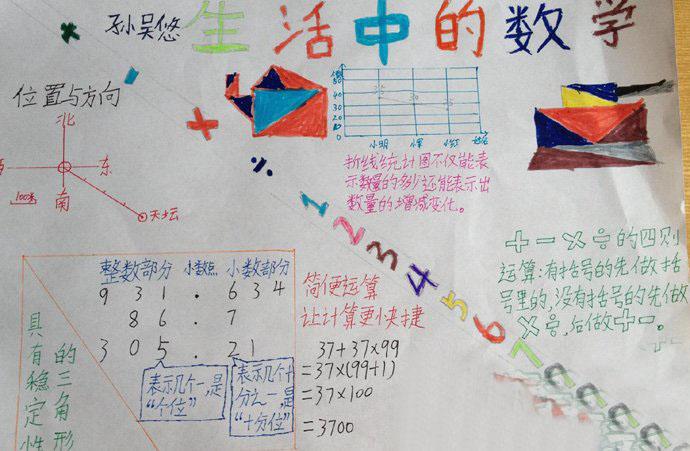 孙吴悠
生活中的数学
位置与方向
北
西
东
南
100米
天坛
50
40
30
20
10
0
35
30
25
小明
小军
小红
姓名
折线统计图不仅能表
示数量的多少还能表示出
数量的增减变化。
1 2 3 4 5 6 7
+ - × ÷的四则
运算:有括号的先做括
号里的,没有括号的先做
× ÷,后做+-。
整数部分 小数点 小数部分
9 3 1 . 6 3 4
8 6 . 7
3 0 5 . 2 1
表示几个一,是
“个位”
表示几个十
分之一,是
“十分位”
具有稳定性
的三角形
简便运算
让计算更快捷
37+37×99
=37×(99+1)
=37×100
=3700